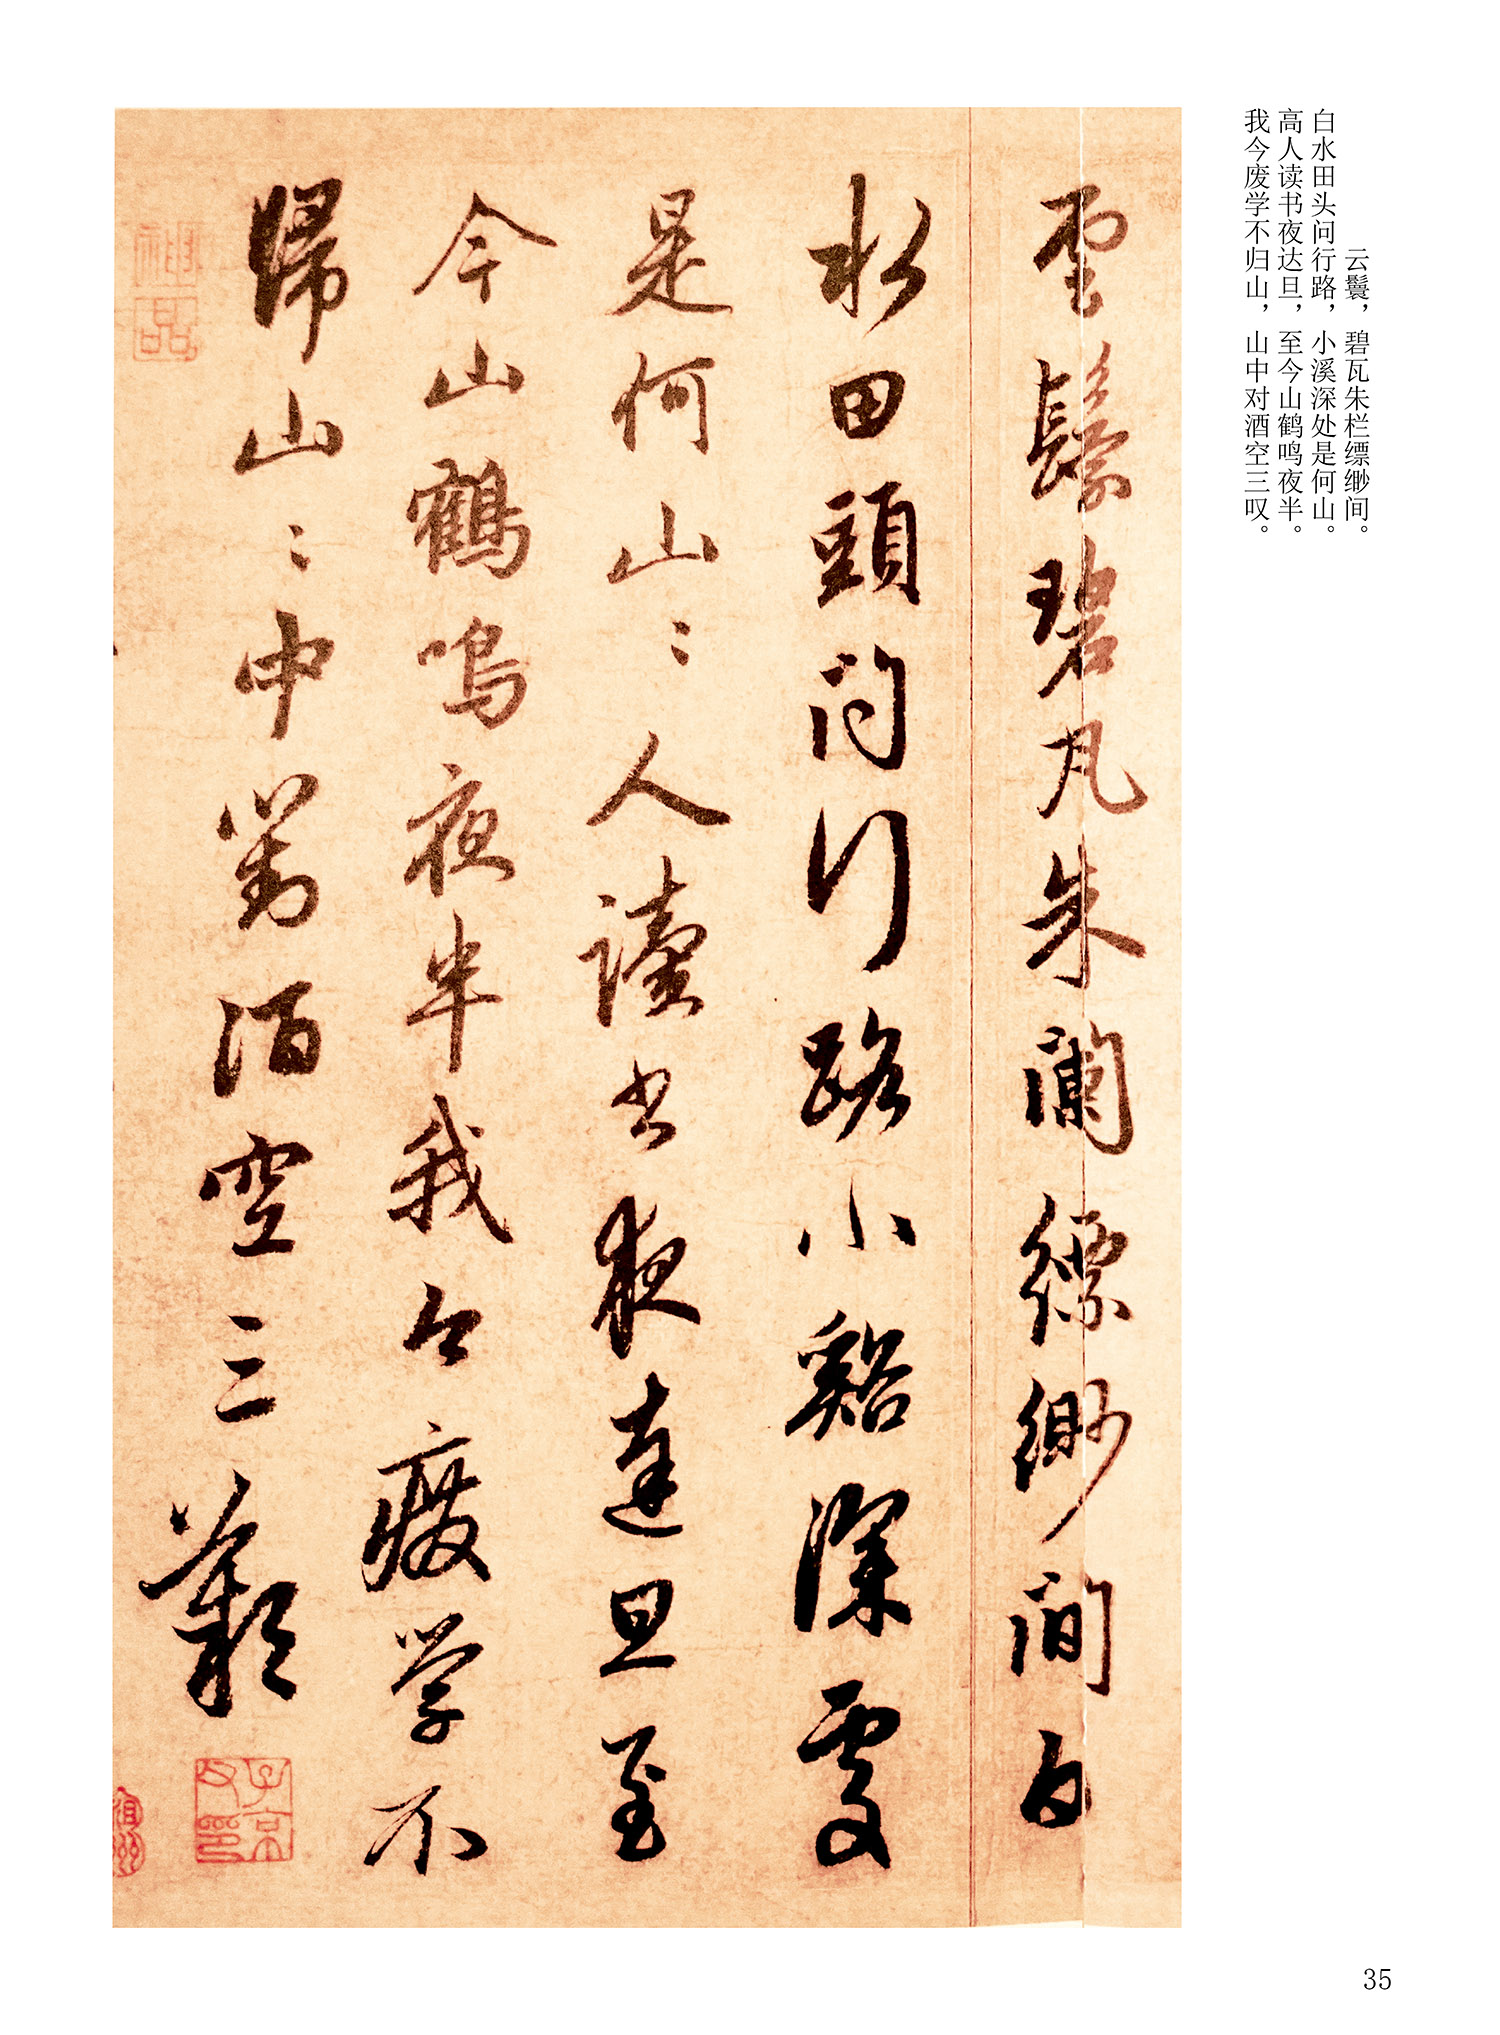 云鬟，碧瓦朱栏缥缈间。
白水田头问行路，小溪深处是何山。
高人读书夜达旦，至今山鹤鸣夜半。
我今废学不归山，山中对酒空三叹。
雲鬟碧瓦朱闌縹緲間白
水田頭問行路小谿深處
是何山〻人讀書夜達旦至
今山鶴鳴夜半我今廢學不
歸山〻中對酒空三歎
神品
子京父印
35